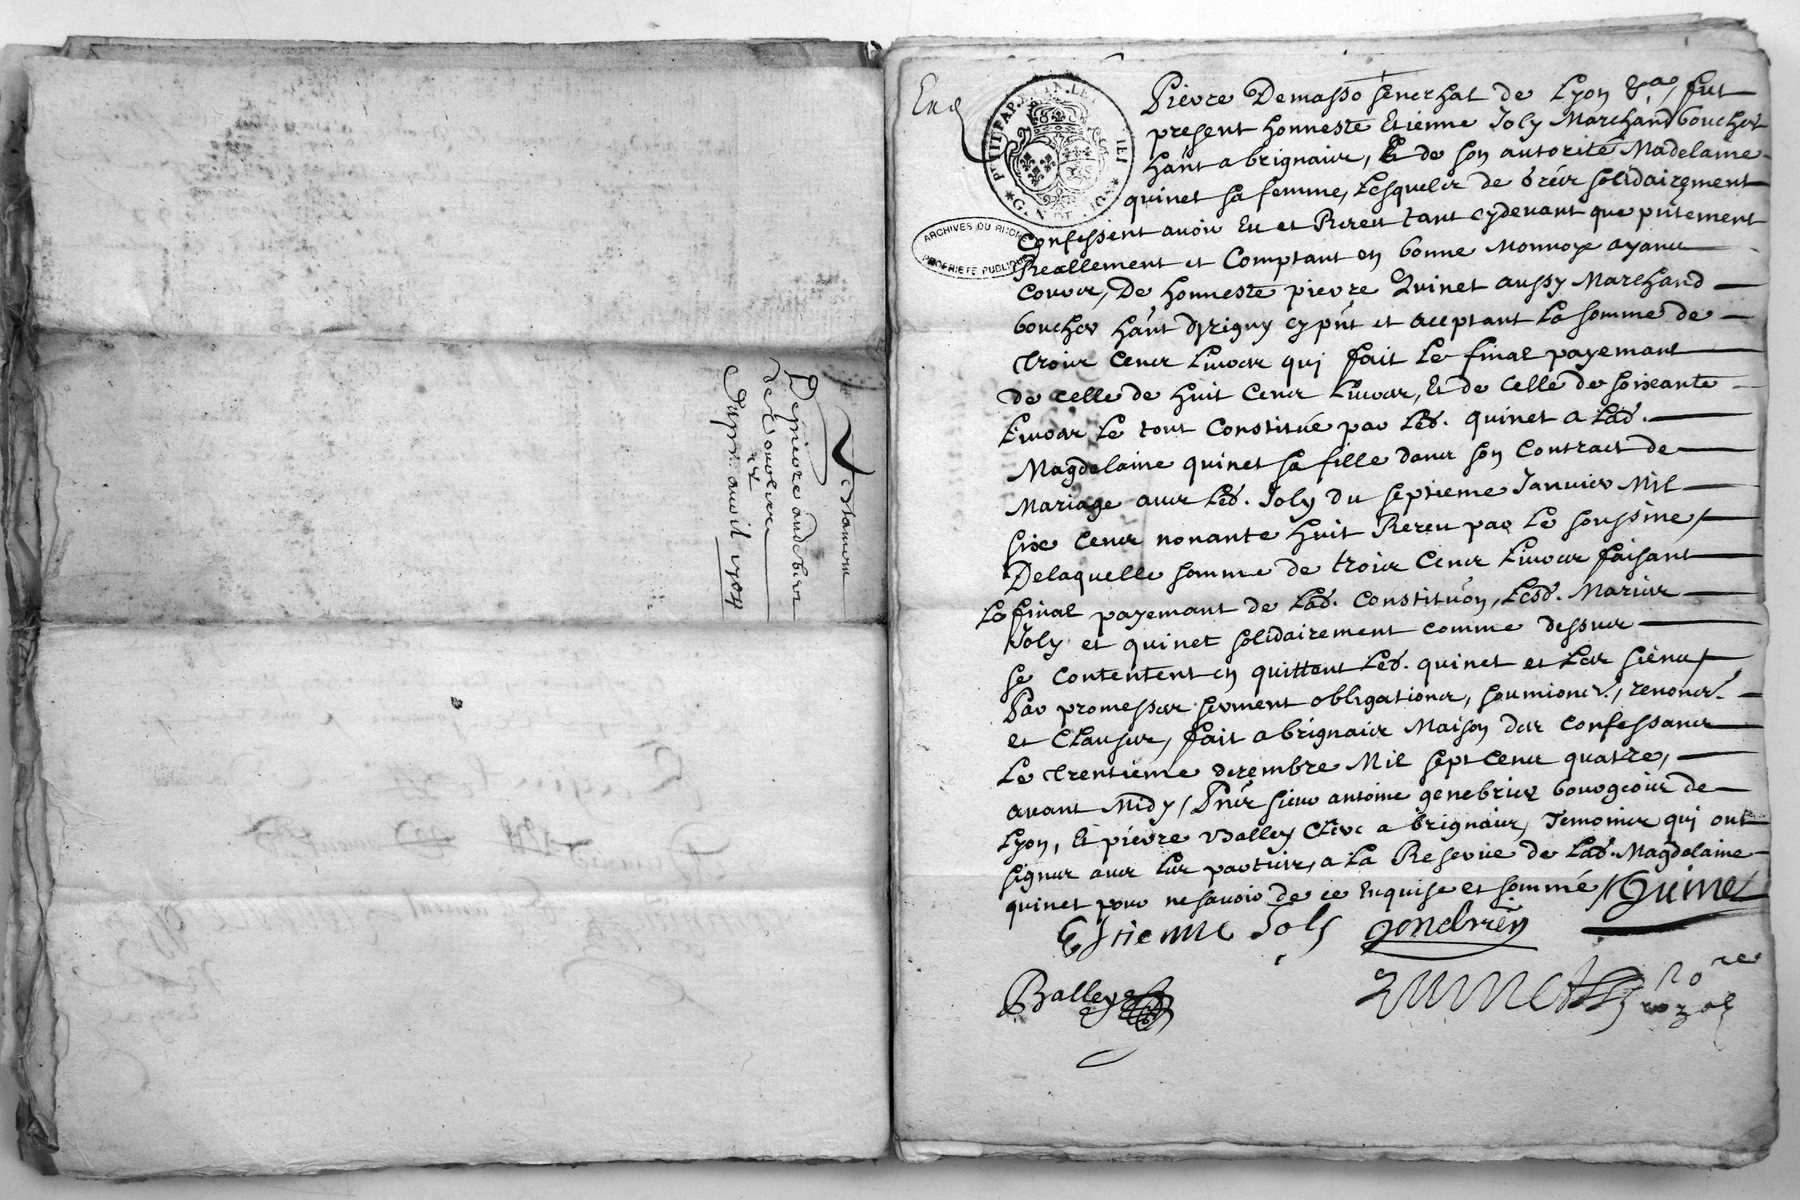 Testament
De pierre audebert
de Vourles
Du prr. avril 1704
Enq
PETIT PAP.
G. N. DE
ARCHIVES DU RHONE
PROPRIETE PUBLIQUE
Pierre Demasso senechal de Lyon &a, fut
present honneste Etienne Joly Marchand boucher
hant a brignais, Et de son autorite Madelaine
quinet sa femme, Lesquels de Grés solidairement
Confessent avoir Eu et Receu tant cydevant que pntement
Reallement et Comptant en bonne Monnoye ayant
Cours, De honneste pierre Quinet aussy Marchand
boucher hant dyrigny cy pnt et aceptant La somme de
trois Cens Livres qui fait Le final payemant
de celle de huit Cens Livres, Et de Celle de soixante
Livres Le tout Constitué par Led. quinet a Lad.
Magdelaine quinet sa fille dans son Contract de
Mariage avec Led. Joly du septieme Janvier Mil
six Cens nonante huit Receu par Le soussine,
Delaquelle somme de trois Cens Livres faisant
Le final payemant de Lad. Constituon, Lesd. Mariés
Joly et quinet solidairement comme dessus
se Contentent en quittent Led. quinet et Les siens
Par promesses serment obligations, soumions., renons.
et Clauses, fait a brignais Maison des Confessans
Le trentieme decembre Mil sept Cens quatre,
avant Midy, Pnts sieur antoine genebrier bourgeois de
Lyon, Et pierre Balley Clerc a brignais, Temoins qui ont
signes avec Les parties, a La Reserve de Lad. Magdelaine
quinet pour ne savoir de ce Enquise et sommé Quinet
Estienne Joly genebrier
Balley